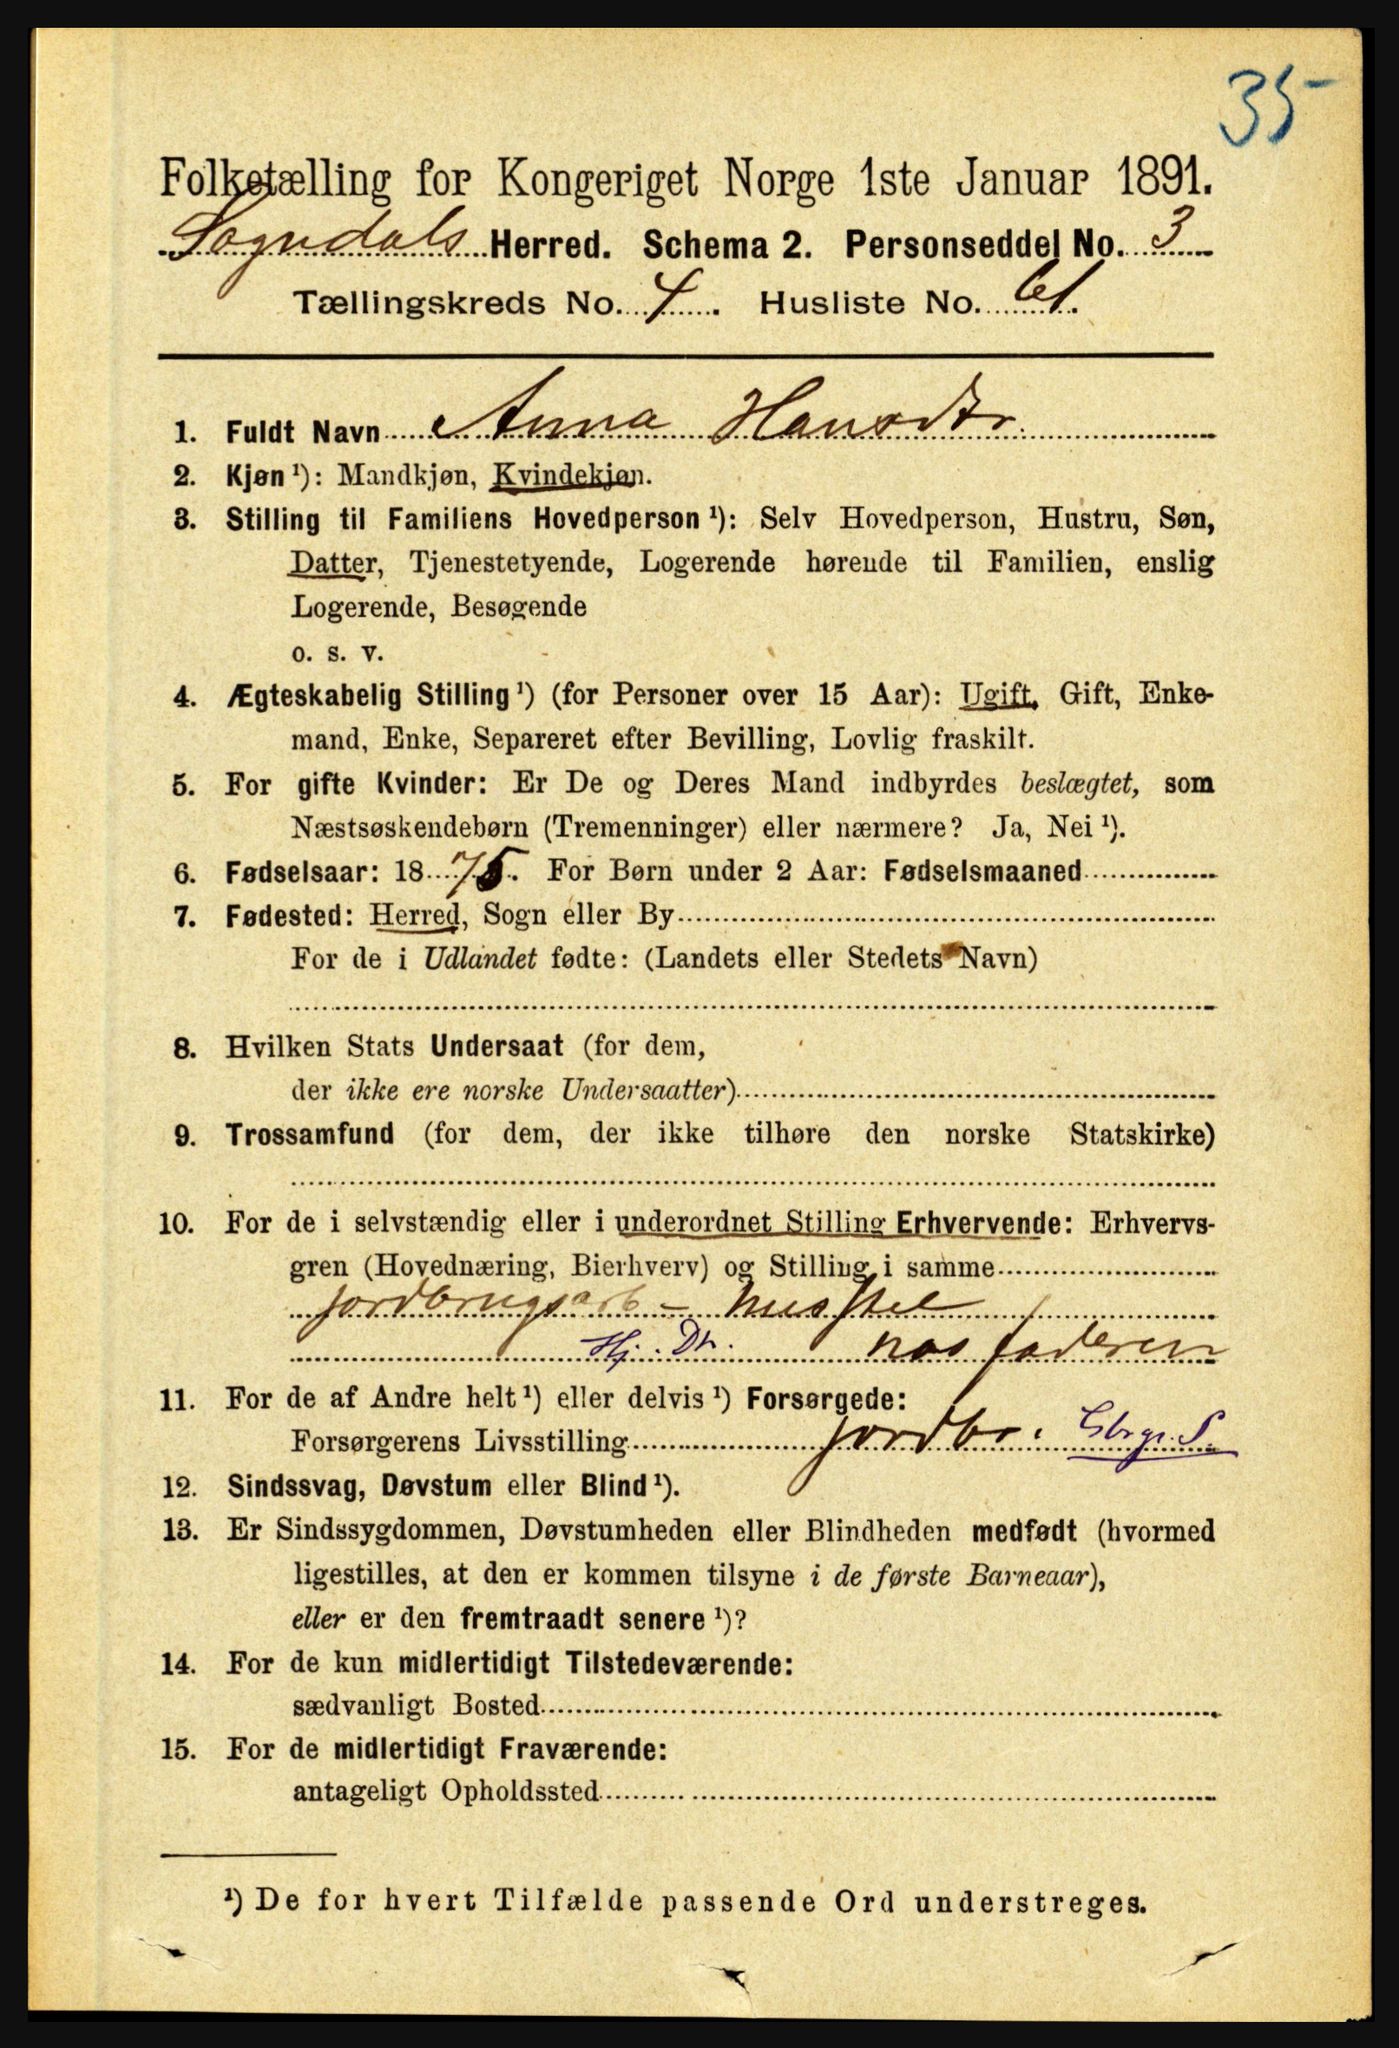 35
Folketælling for Kongeriget Norge 1ste Januar 1891.
Sogndals Herred. Schema 2. Personseddel No. 3
Tællingskreds No. 4. Husliste No. 61.
1. Fuldt Navn Anna Hansdtr.
2. Kjøn ¹): Mandkjøn, Kvindekjøn.
3. Stilling til Familiens Hovedperson ¹): Selv Hovedperson, Hustru, Søn,
Datter, Tjenestetyende, Logerende hørende til Familien, enslig
Logerende, Besøgende
o. s. v.
4. Ægteskabelig Stilling ¹) (for Personer over 15 Aar): Ugift, Gift, Enke-
mand, Enke, Separeret efter Bevilling, Lovlig fraskilt.
5. For gifte Kvinder: Er De og Deres Mand indbyrdes beslægtet, som
Næstsøskendebørn (Tremenninger) eller nærmere? Ja, Nei ¹).
6. Fødselsaar: 1875. For Børn under 2 Aar: Fødselsmaaned
7. Fødested: Herred, Sogn eller By
For de i Udlandet fødte: (Landets eller Stedets Navn)
8. Hvilken Stats Undersaat (for dem,
der ikke ere norske Undersaatter)
9. Trossamfund (for dem, der ikke tilhøre den norske Statskirke)
10. For de i selvstændig eller i underordnet Stilling Erhvervende: Erhvervs-
gren (Hovednæring, Bierhverv) og Stilling i samme
jordbrugsarb - husstel
Hj. Dtr. hos faderen
11. For de af Andre helt ¹) eller delvis ¹) Forsørgede:
Forsørgerens Livsstilling jordbr. Gbgr. S.
12. Sindssvag, Døvstum eller Blind ¹).
13. Er Sindssygdommen, Døvstumheden eller Blindheden medfødt (hvormed
ligestilles, at den er kommen tilsyne i de første Barneaar),
eller er den fremtraadt senere ¹)?
14. For de kun midlertidigt Tilstedeværende:
sædvanligt Bosted
15. For de midlertidigt Fraværende:
antageligt Opholdssted
¹) De for hvert Tilfælde passende Ord understreges.